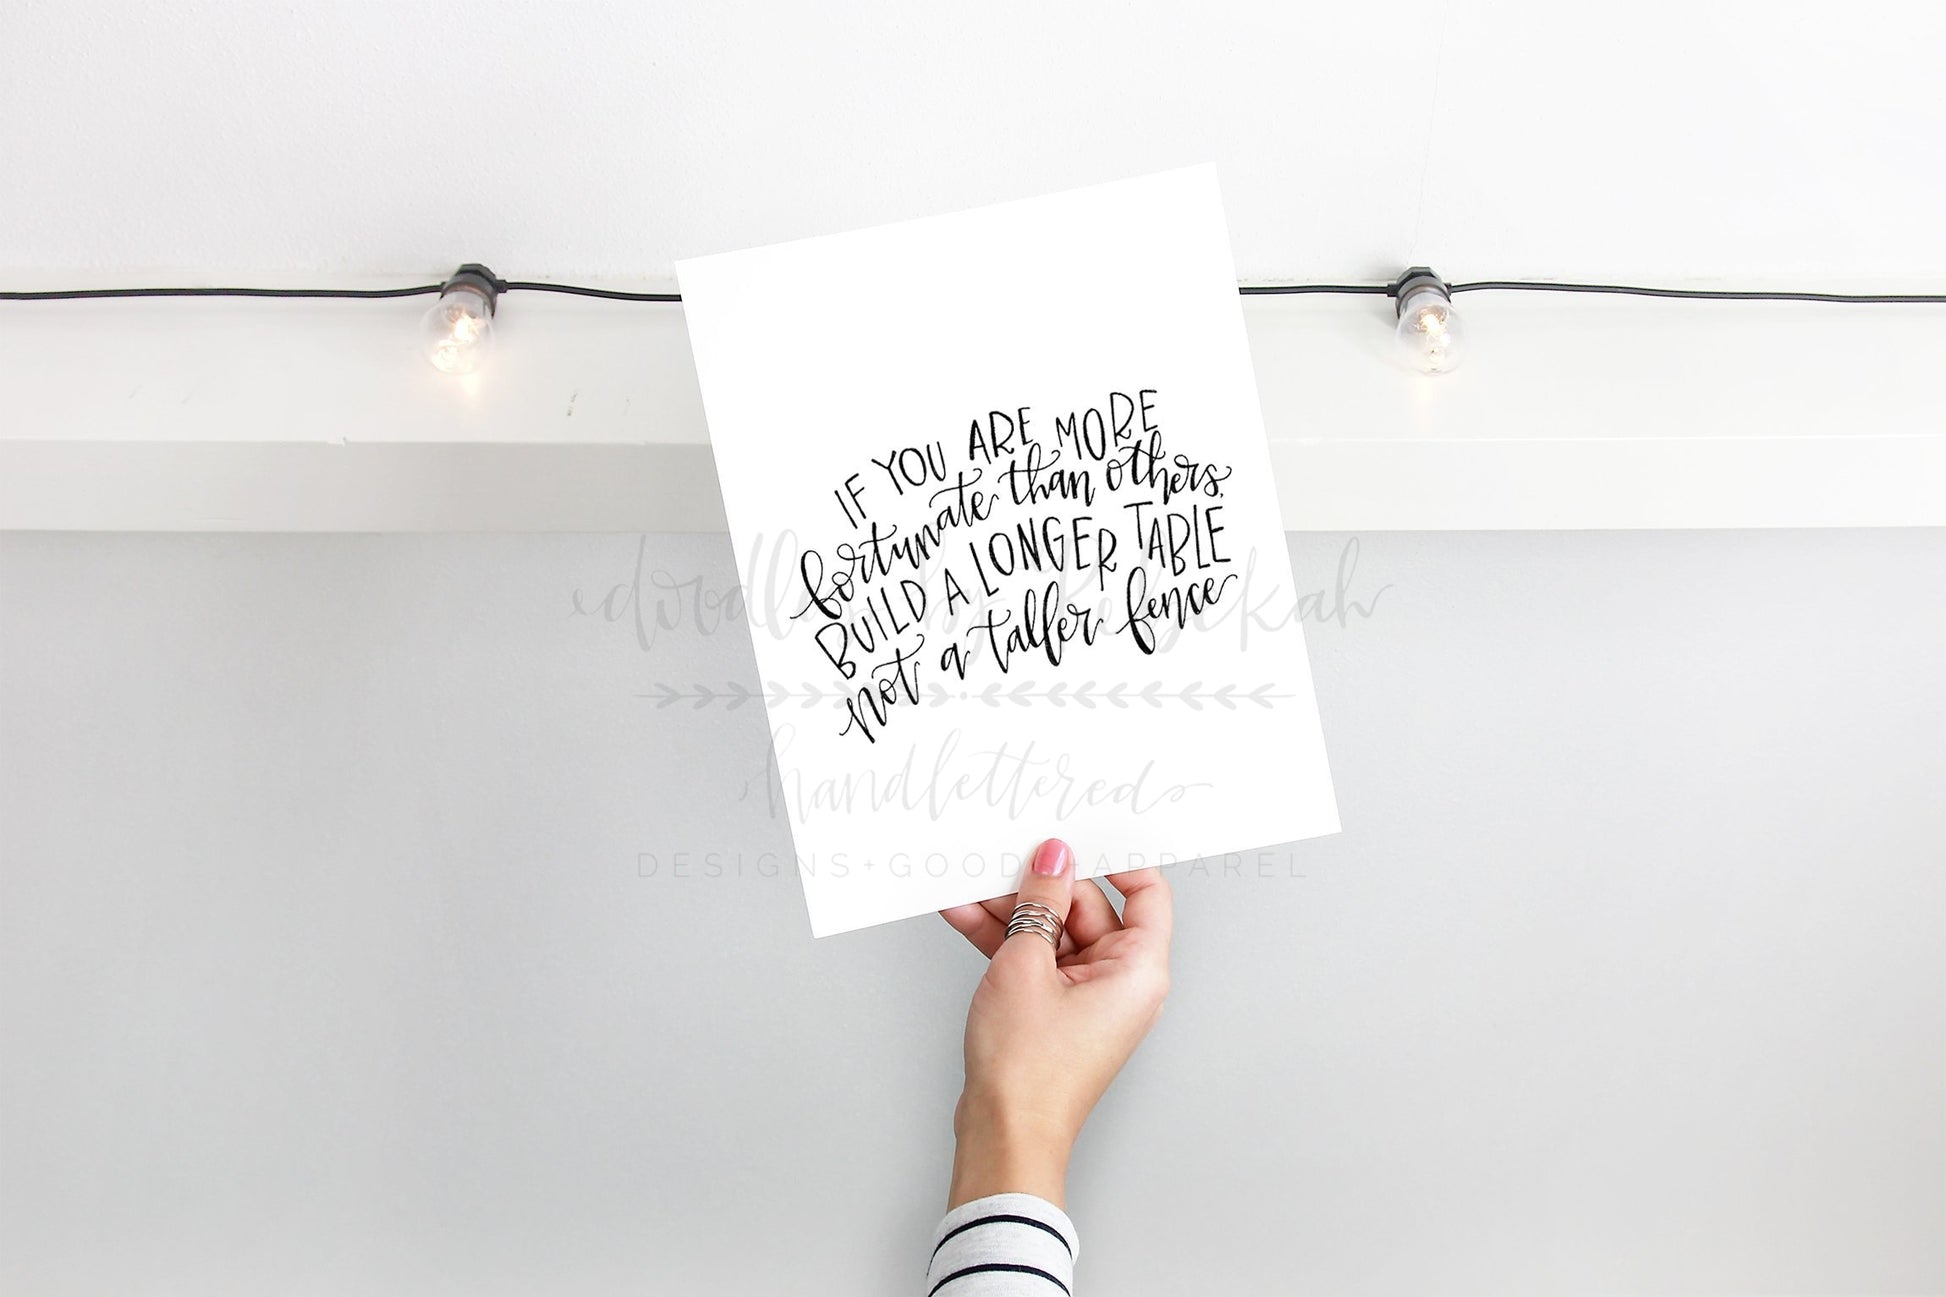 IF YOU ARE MORE
fortunate than others,
BUILD A LONGER TABLE
not a taller fence
doodles by Rebekah
handlettered
DESIGNS+GOODS+APPAREL